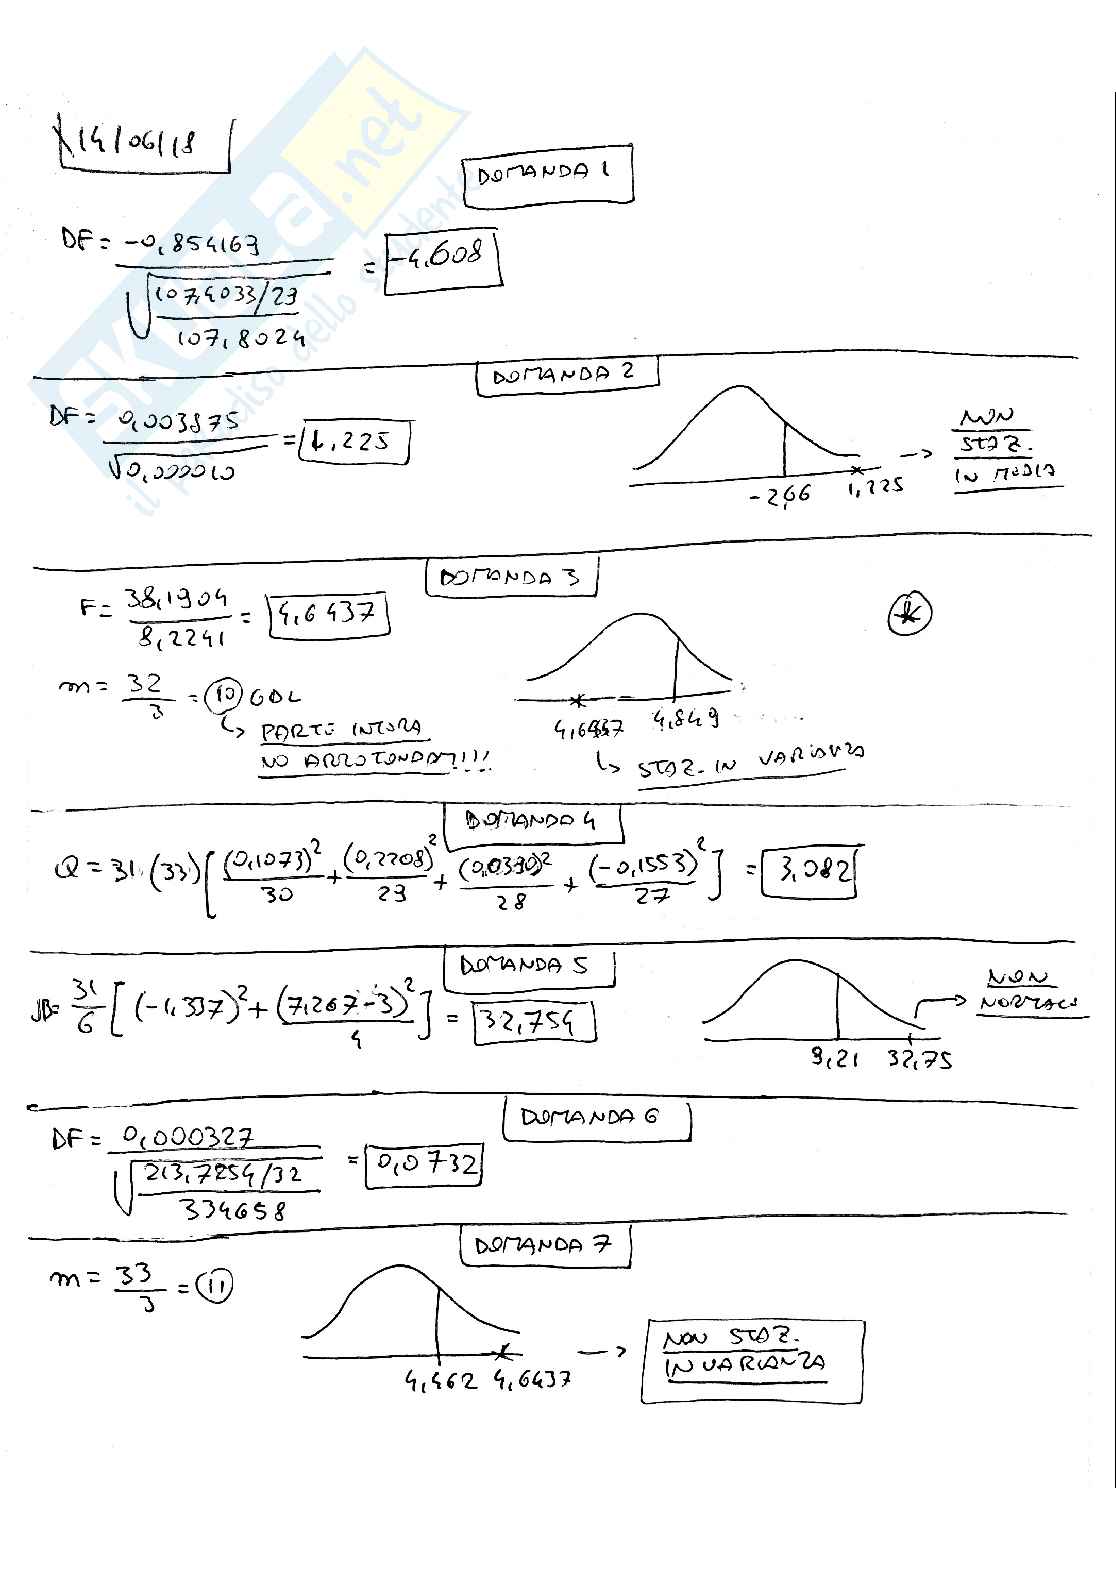 14/06/18
DOMANDA 1
DF = -0,854163 / √((107,4033/29)/107,8024) = -4,608
DOMANDA 2
DF = 0,003875 / √0,000010 = 1,225
-2,66 1,225
→ NON
STAZ.
IN MEDIA
DOMANDA 3
F = 38,1904 / 8,2241 = 4,6437
m = 32/3 = 10 GDL
↳ PARTE INTERA
NO ARROTONDAT!!!!
4,6437 4,849
↳ STAZ. IN VARIANZA
DOMANDA 4
Q = 31·(33)[(0,1073)²/30 + (0,2208)²/29 + (0,0390)²/28 + (-0,1553)²/27] = 3,082
DOMANDA 5
JB = 31/6 [(-1,337)² + (7,267-3)²/4] = 32,754
9,21 32,75
→ NON
NORMALE
DOMANDA 6
DF = 0,000327 / √((213,7254/32)/334658) = 0,0732
DOMANDA 7
m = 33/3 = 11
4,462 4,6437
→ NON STAZ.
IN VARIANZA
SKUOLA.net
il paradiso dello studente